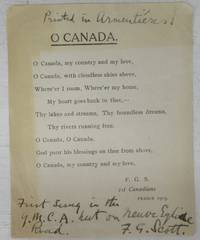 Printed in Armentières!
O CANADA.
O Canada, my country and my love,
O Canada, with cloudless skies above,
Where'er I roam, Where'er my home,
My heart goes back to thee,—
Thy lakes and streams, Thy boundless dreams,
Thy rivers running free.
O Canada, O Canada,
God pour his blessings on thee from above,
O Canada, my country and my love.
F. G. S.
1st Canadians
FRANCE 1915.
First Sung in the
Y.M.C.A. hut on neuve Eglise
Road. F. G. Scott.